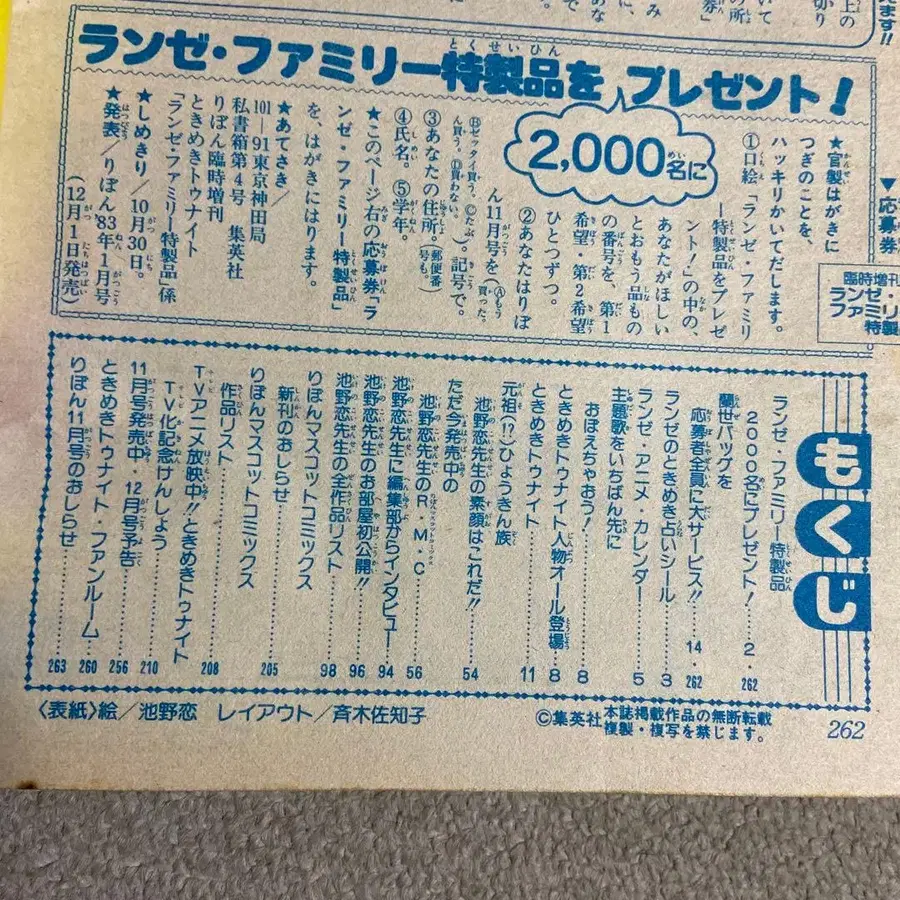 ランゼ・ファミリー特製品を プレゼント!
2,000名に
★官製はがきに
つぎのことを、
ハッキリかいてだします。
①口絵「ランゼ・ファミリ
ー特製品をプレゼ
ント!」の中の、
あなたがほしい
とおもう品もの
の番号を、第1
希望・第2希望
ひとつずつ。
②あなたはりぼ
ん11月号を(Ⓐもう買った。
Ⓑゼッタイ買う。Ⓒたぶ
ん買う。Ⓓ買わない。)。記号で。
③あなたの住所。(郵便番号も。)
④氏名。⑤学年。
★このページ右の応募券「ラ
ンゼ・ファミリー特製品」
を、はがきにはります。
★あてさき/
101-91東京神田局
私書箱第4号 集英社
りぼん臨時増刊
ときめきトゥナイト
「ランゼ・ファミリー特製品」係
★しめきり/10月30日。
★発表/りぼん'83年1月号
(12月1日発売)
▼応募券
臨時増刊
ランゼ・
ファミリ
特製
もくじ
ランゼ・ファミリー特製品
2000名にプレゼント!…2・262
蘭世バッグを
応募者全員に大サービス!!…14・262
ランゼのときめき占いシール…3
ランゼ・アニメ・カレンダー…5
主題歌をいちばん先に
おぼえちゃおう!…8
ときめきトゥナイト人物オール登場…8
ときめきトゥナイト…11
元祖(!?)ひょうきん族
池野恋先生の素顔はこれだ!!…54
ただ今発売中の
池野恋先生のR・M・C…56
池野恋先生に編集部からインタビュー…94
池野恋先生のお部屋初公開!!…96
池野恋先生の全作品リスト…98
りぼんマスコットコミックス
新刊のおしらせ…205
りぼんマスコットコミックス
作品リスト…208
TVアニメ放映中!!ときめきトゥナイト
TV化記念けんしょう…210
11月号発売中・12月号予告…256
ときめきトゥナイト・ファンルーム…260
りぼん11月号のおしらせ…263
〈表紙〉絵/池野恋 レイアウト/斉木佐知子
©集英社 本誌掲載作品の無断転載
複製・複写を禁じます。
262